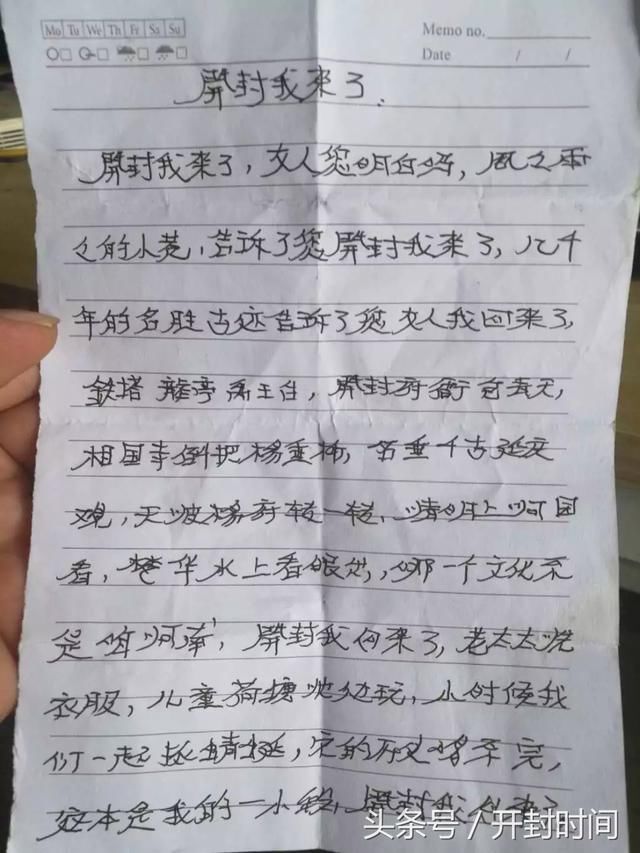 Mo Tu We Th Fr Sa Su
Memo no.
Date / /
開封我来了.
開封我来了,女人您明白吗,风之雨
之的小巷,告诉了您開封我来了,几千
年的名胜古迹告诉了您女人我回来了,
鉄塔龍亭禹王台,開封府衙包青天,
相国寺倒把杨垂柳,名垂千古延庆
观,天波杨府转一转,清明上河园
看,繁华水上看,哪一个文化不
是咱河南,開封我来了,老太太洗
衣服,儿童荷塘边玩,小时候我
们一起捉蜻蜓,它的历史将不完,
这本是我的一小段,開封我来了
头条号/开封时间